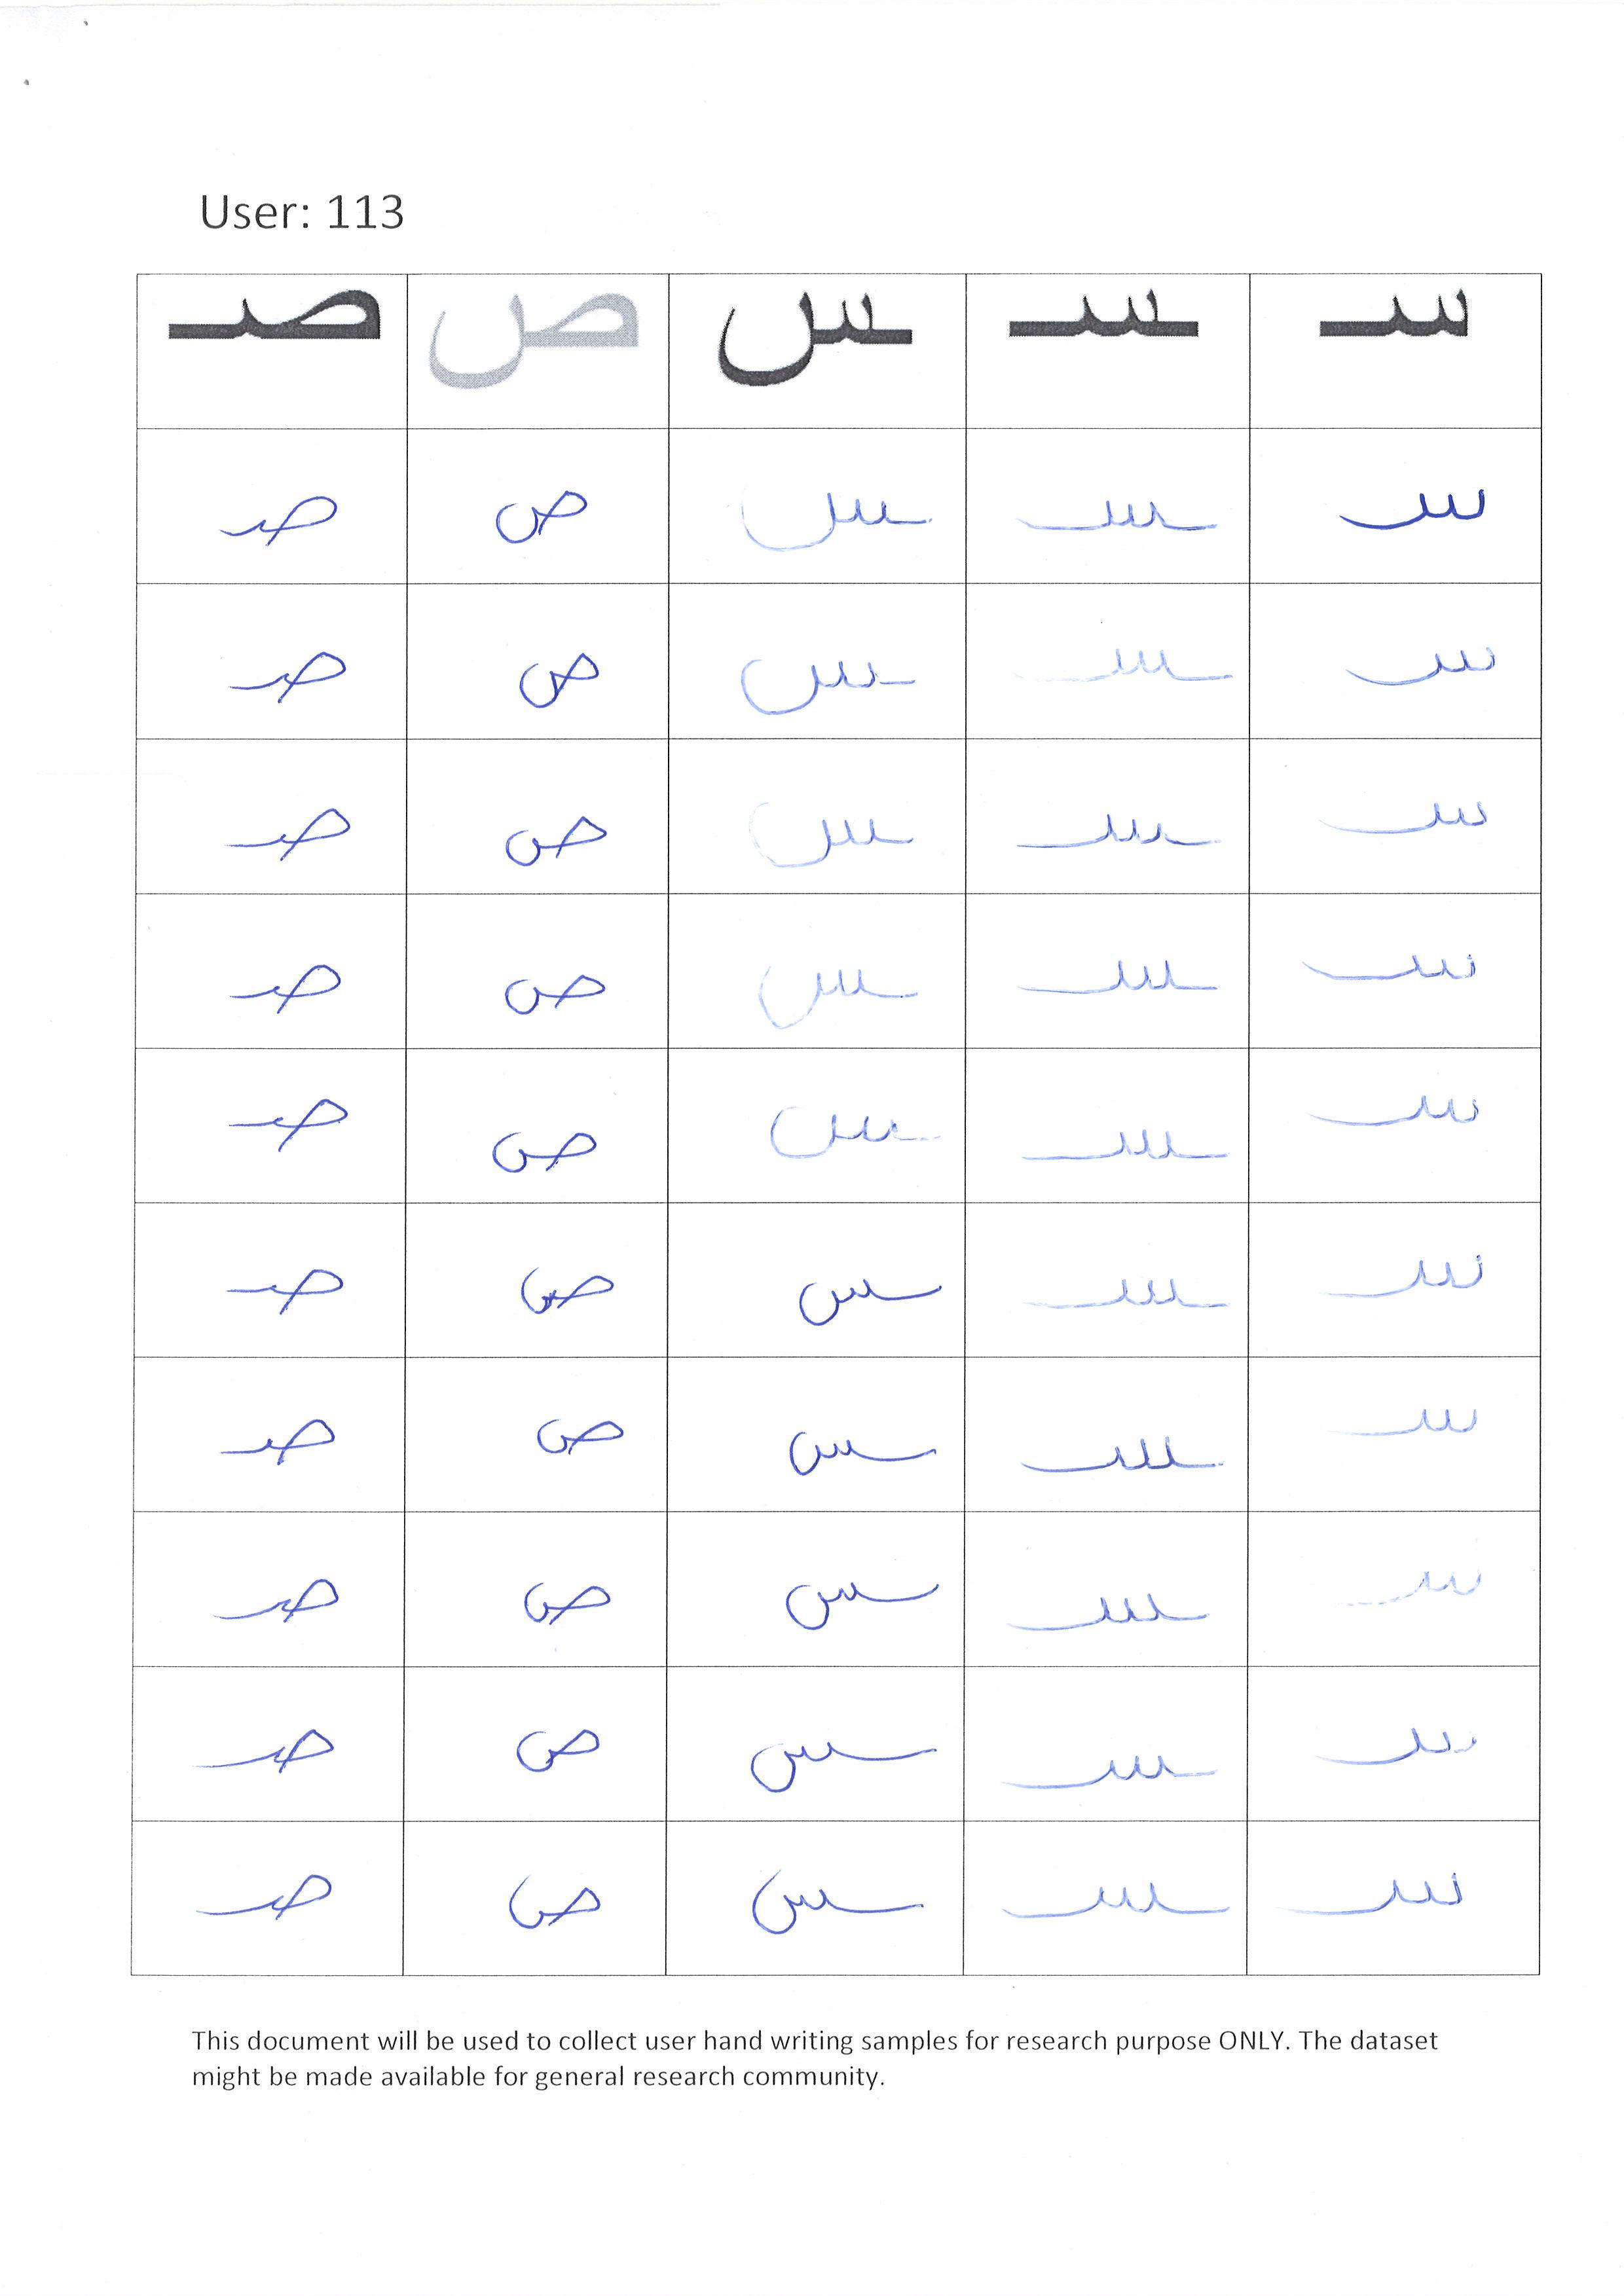 User: 113
سـ ـسـ ـس ص صـ
سـ ـسـ ـس ص صـ
سـ ـسـ ـس ص صـ
سـ ـسـ ـس ص صـ
سـ ـسـ ـس ص صـ
سـ ـسـ ـس ص صـ
سـ ـسـ ـس ص صـ
سـ ـسـ ـس ص صـ
سـ ـسـ ـس ص صـ
سـ ـسـ ـس ص صـ
سـ ـسـ ـس ص صـ
This document will be used to collect user hand writing samples for research purpose ONLY. The dataset
might be made available for general research community.